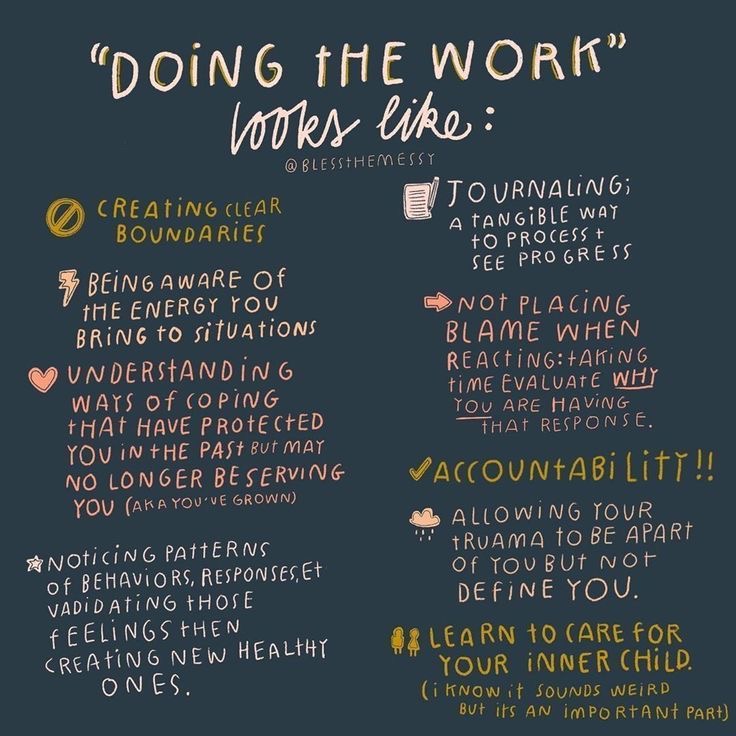 "DOING THE WORK"
looks like:
@BLESSTHEMESSY
CREATING CLEAR
BOUNDARIES
BEING AWARE OF
THE ENERGY YOU
BRING TO SITUATIONS
UNDERSTANDING
WAYS OF COPING
THAT HAVE PROTECTED
YOU IN THE PAST BUT MAY
NO LONGER BE SERVING
YOU (AKA YOU'VE GROWN)
NOTICING PATTERNS
OF BEHAVIORS, RESPONSES, Et
VADIDATING THOSE
FEELINGS THEN
CREATING NEW HEALTHY
ONES.
JOURNALING;
A TANGIBLE WAY
TO PROCESS +
SEE PROGRESS
NOT PLACING
BLAME WHEN
REACTING: TAKING
TIME EVALUATE WHY
YOU ARE HAVING
THAT RESPONSE.
ACCOUNTABILITY!!
ALLOWING YOUR
TRUAMA TO BE APART
OF YOU BUT NOT
DEFINE YOU.
LEARN TO CARE FOR
YOUR INNER CHILD.
(I KNOW IT SOUNDS WEIRD
BUT ITS AN IMPORTANT PART)